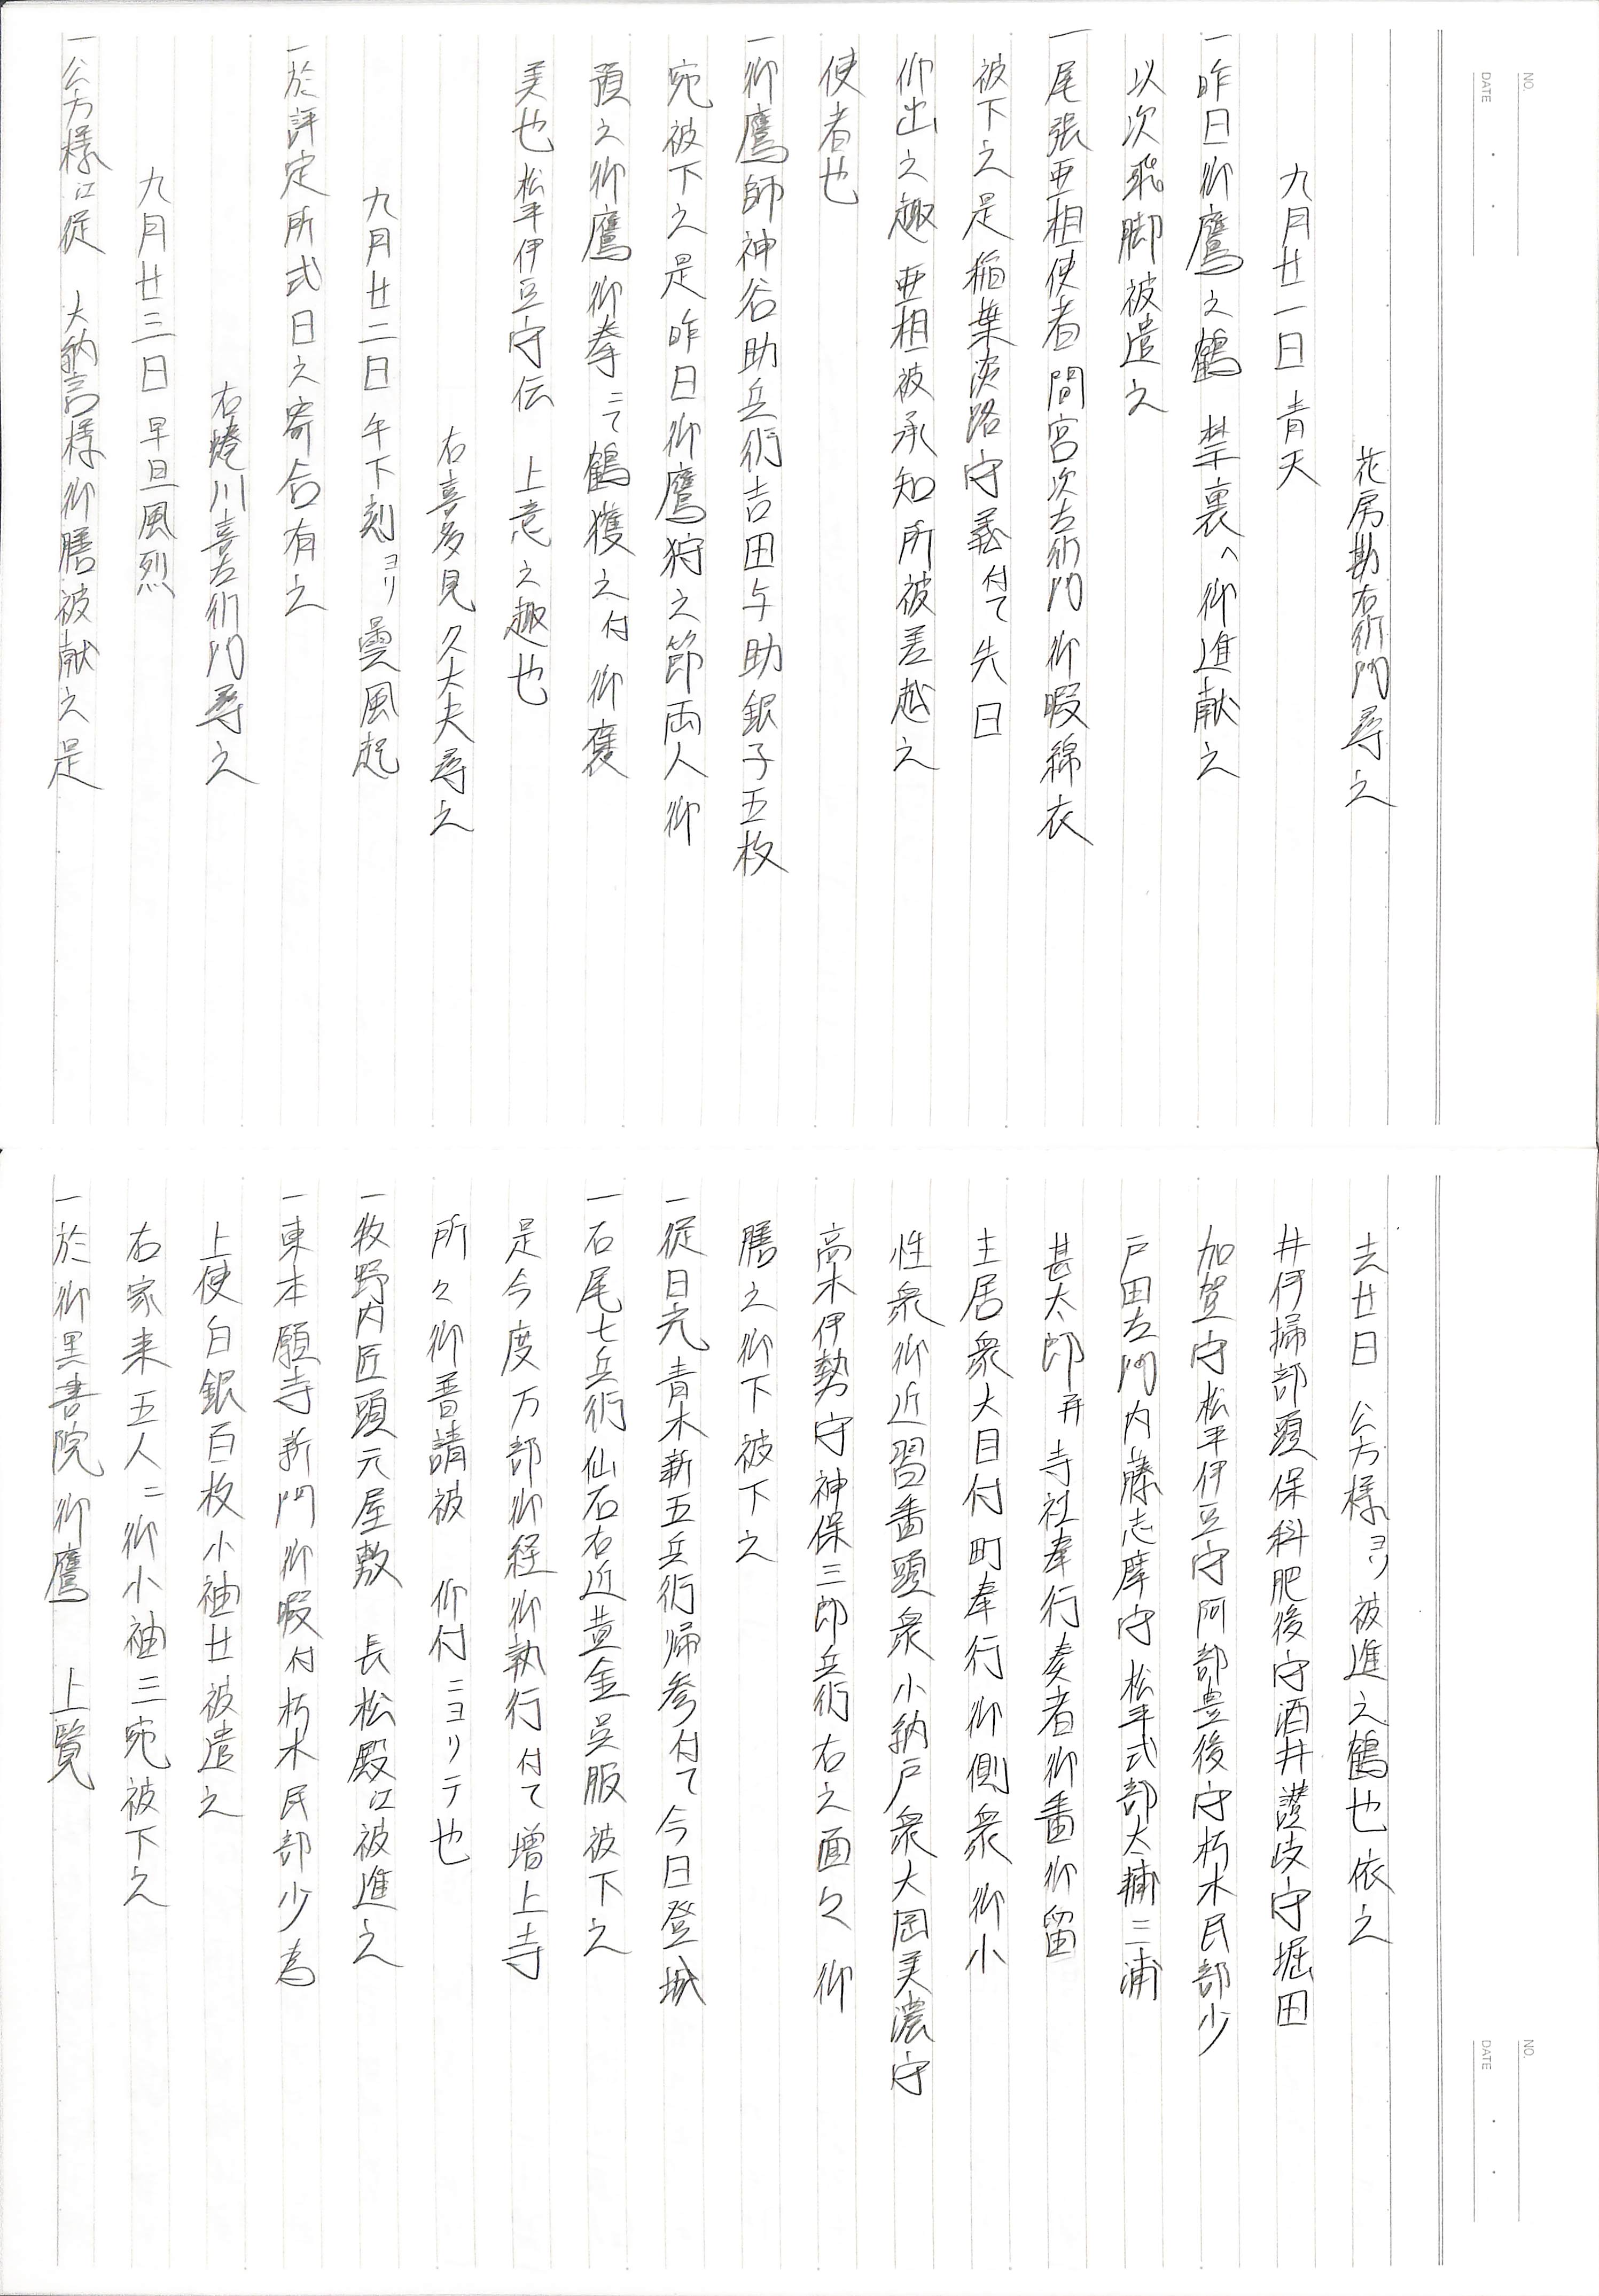 NO.
DATE
花房勘右衛門尋之
九月廿一日 青天
一昨日御鷹之鶴 禁裏へ御進献之
以次飛脚被遣之
一尾張亜相使者間宮次左衛門御暇綿衣
被下之是稲葉淡路守義付て先日
仰出之趣亜相被承知所被差越之
使者也
一御鷹師神谷助兵衛吉田与助銀子五枚
宛被下之是昨日御鷹狩之節両人御
預之御鷹御拳ニて鶴獲之付御褒
美也松平伊豆守伝 上意之趣也
右喜多見久大夫尋之
九月廿二日 午下刻ヨリ曇風起
一於評定所式日之寄合有之
右蜷川喜左衛門尋之
九月廿三日 早旦風烈
一公方様江従 大納言様御膳被献之是
NO.
DATE
去廿日 公方様ヨリ被進之鶴也依之
井伊掃部頭保科肥後守酒井讃岐守堀田
加賀守松平伊豆守阿部豊後守朽木民部少
戸田左門内藤志摩守松平式部太輔三浦
甚太郎并寺社奉行奏者御番御留
主居衆大目付町奉行御側衆御小
性衆御近習番頭衆小納戸衆大岡美濃守
高木伊勢守神保三郎兵衛右之面々御
膳之御下被下之
一従日光青木新五兵衛帰参付て今日登城
一石尾七兵衛仙石右近黄金呉服被下之
是今度万部御経御執行付て増上寺
所々御普請被 仰付ニヨリテ也
一牧野内匠頭元屋敷 長松殿江被進之
一東本願寺新門御暇付朽木民部少為
上使白銀百枚小袖廿被遣之
右家来五人ニ御小袖三宛被下之
一於御黒書院御鷹 上覧